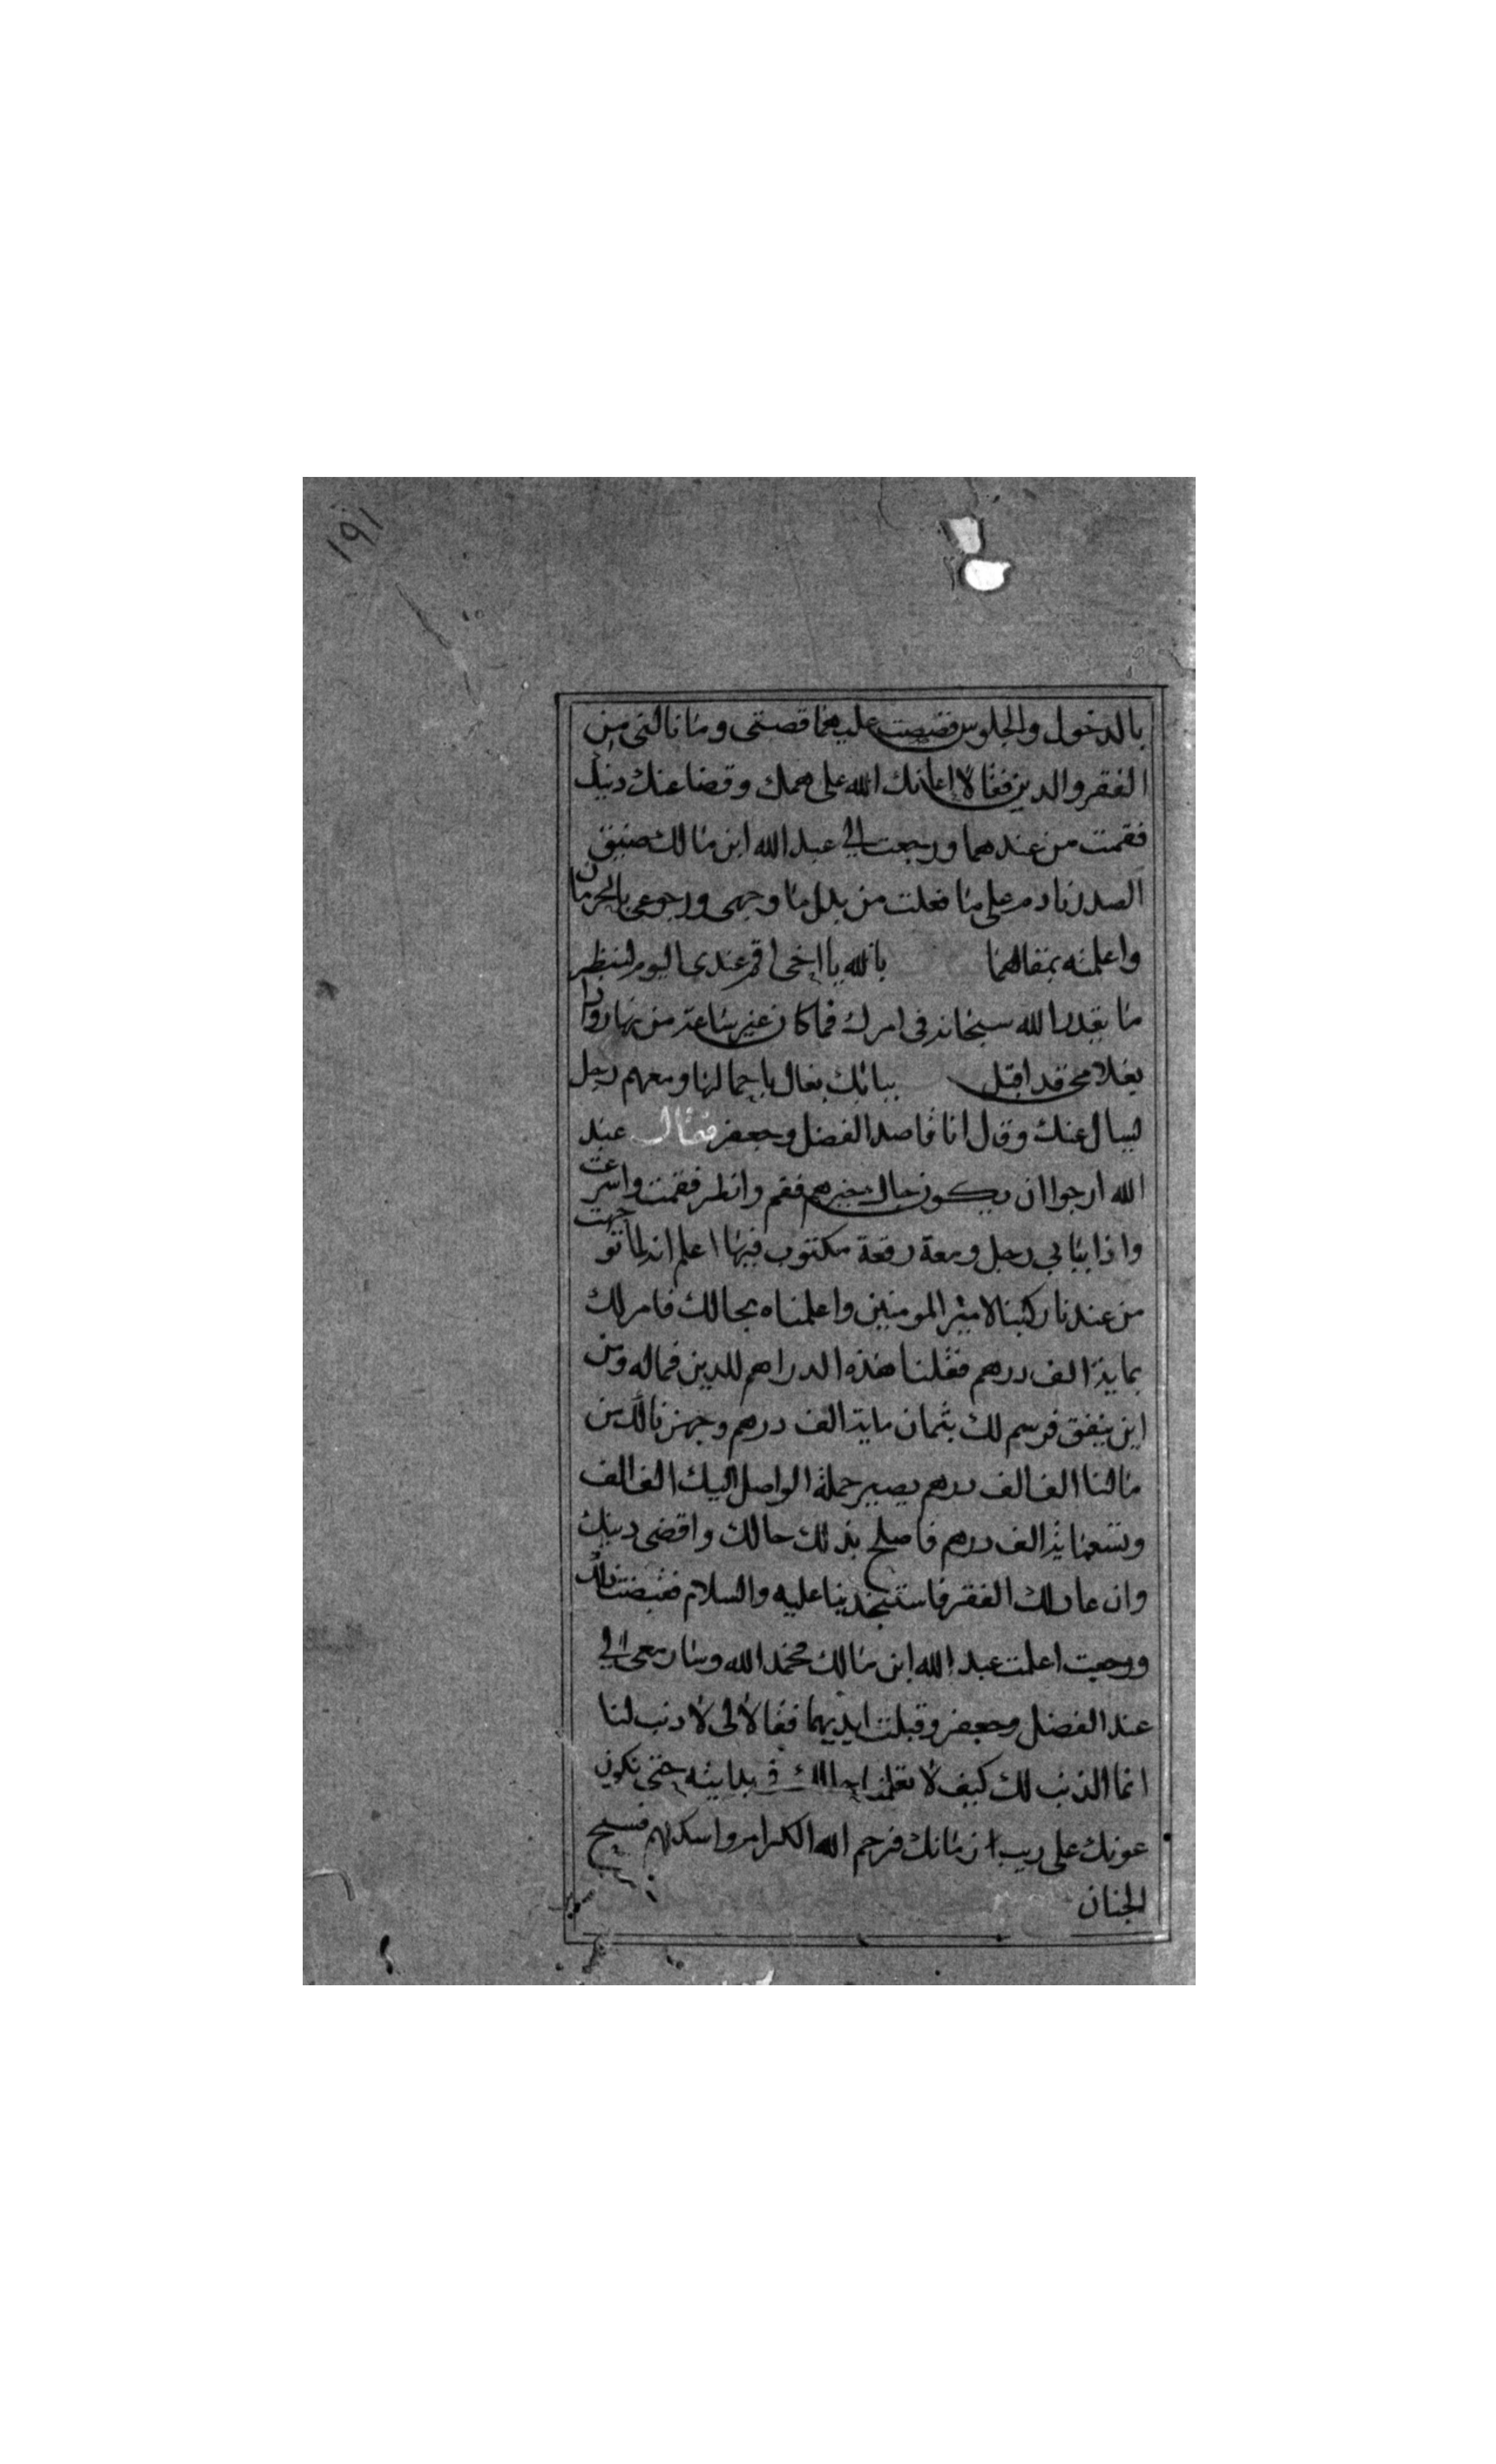 ١٩١
بالدخول والجلوس فقصيت عليهما قصتى وما نالنى من
الفقر والدين فقالا اعانك الله على همك وقضا عنك دينك
فقمت من عندهما ورجعت الى عبد الله ابن مالك ضيق
الصدر نادم على ما فعلت من بدل ما وجهى ورجوعى بالحرمان
واعلمته بمقالهما بالله يا اخى اقم عندى اليوم لننظر
ما يقدر الله سبحانه فى امرك فما كان غير ساعة من نهار واذا
بغلام قد اقبل ببابك بغال باحمالها ومعهم رجل
ليسال عنك وقال انا قاصد الفضل وجعفر فقال عبد
الله ارجوا ان يكون حال بخيرهم فقم وانظر فقمت واسرعت
واذا ببابى رجل ومعه رقعة مكتوب فيها اعلم انه لما توجهت
من عندنا ركبنا لامير المومنين واعلمناه بحالك فامر لك
بماية الف درهم فقلنا هذه الدراهم للدين فماله ومن
اين ينفق فرسم لك بثمان ماية الف درهم وجهزنا لك من
مالنا الف الف درهم يصير جملة الواصل اليك الف الف
وتسعماية الف درهم فاصلح بذلك حالك واقضى دينك
وان عاد لك الفقر فاستنجد بنا عليه والسلام فقبضت ذلك
ورجعت اعلمت عبد الله ابن مالك فحمد الله وسار معى الى
عند الفضل وجعفر وقبلت ايديهما فقالا لى لا ذنب لنا
انما الذنب لك كيف لا تعلمنا بحالك فى بدايته حتى نكون
عونك على ريب زمانك فرحم الله الكرام واسكنهم فسيح
الجنان